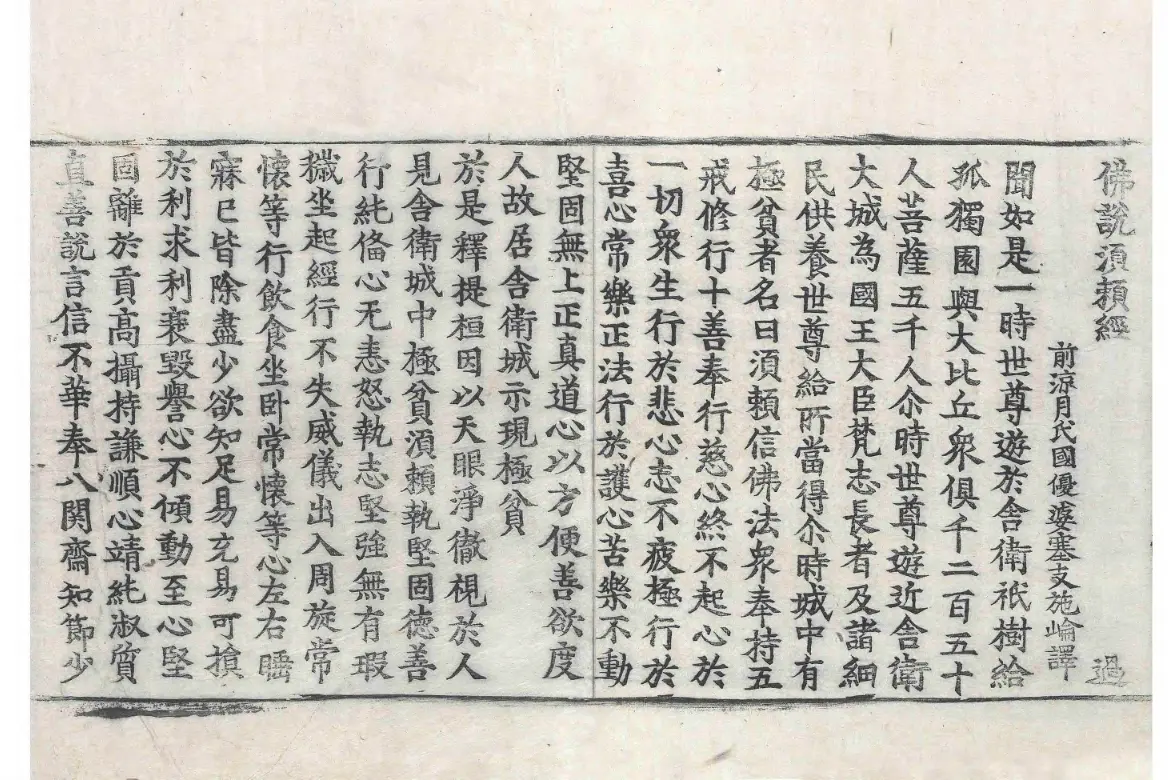 佛說須賴經 過
前涼月氏國優婆塞支施崘譯
聞如是一時世尊遊於舍衛祇樹給
孤獨園與大比丘衆俱千二百五十
人菩薩五千人尒時世尊遊近舍衛
大城為國王大臣梵志長者及諸細
民供養世尊給所當得尒時城中有
極貧者名曰須賴信佛法衆奉持五
戒修行十善奉行慈心終不起心於
一切衆生行於悲心志不疲極行於
喜心常樂正法行於護心苦樂不動
堅固無上正真道心以方便善欲度
人故居舍衛城示現極貧
於是釋提桓因以天眼淨徹視於人
見舍衛城中極貧須賴執堅固德善
行純俻心无恚怒執志堅強無有瑕
穢坐起經行不失威儀出入周旋常
懷等行飲食坐卧常懷等心左右睡
寐已皆除盡少欲知足易充易可損
於利求利衰毀譽心不傾動至心堅
固離於貢高攝持謙順心靖純淑質
直善說言信不華奉八関齋知節少